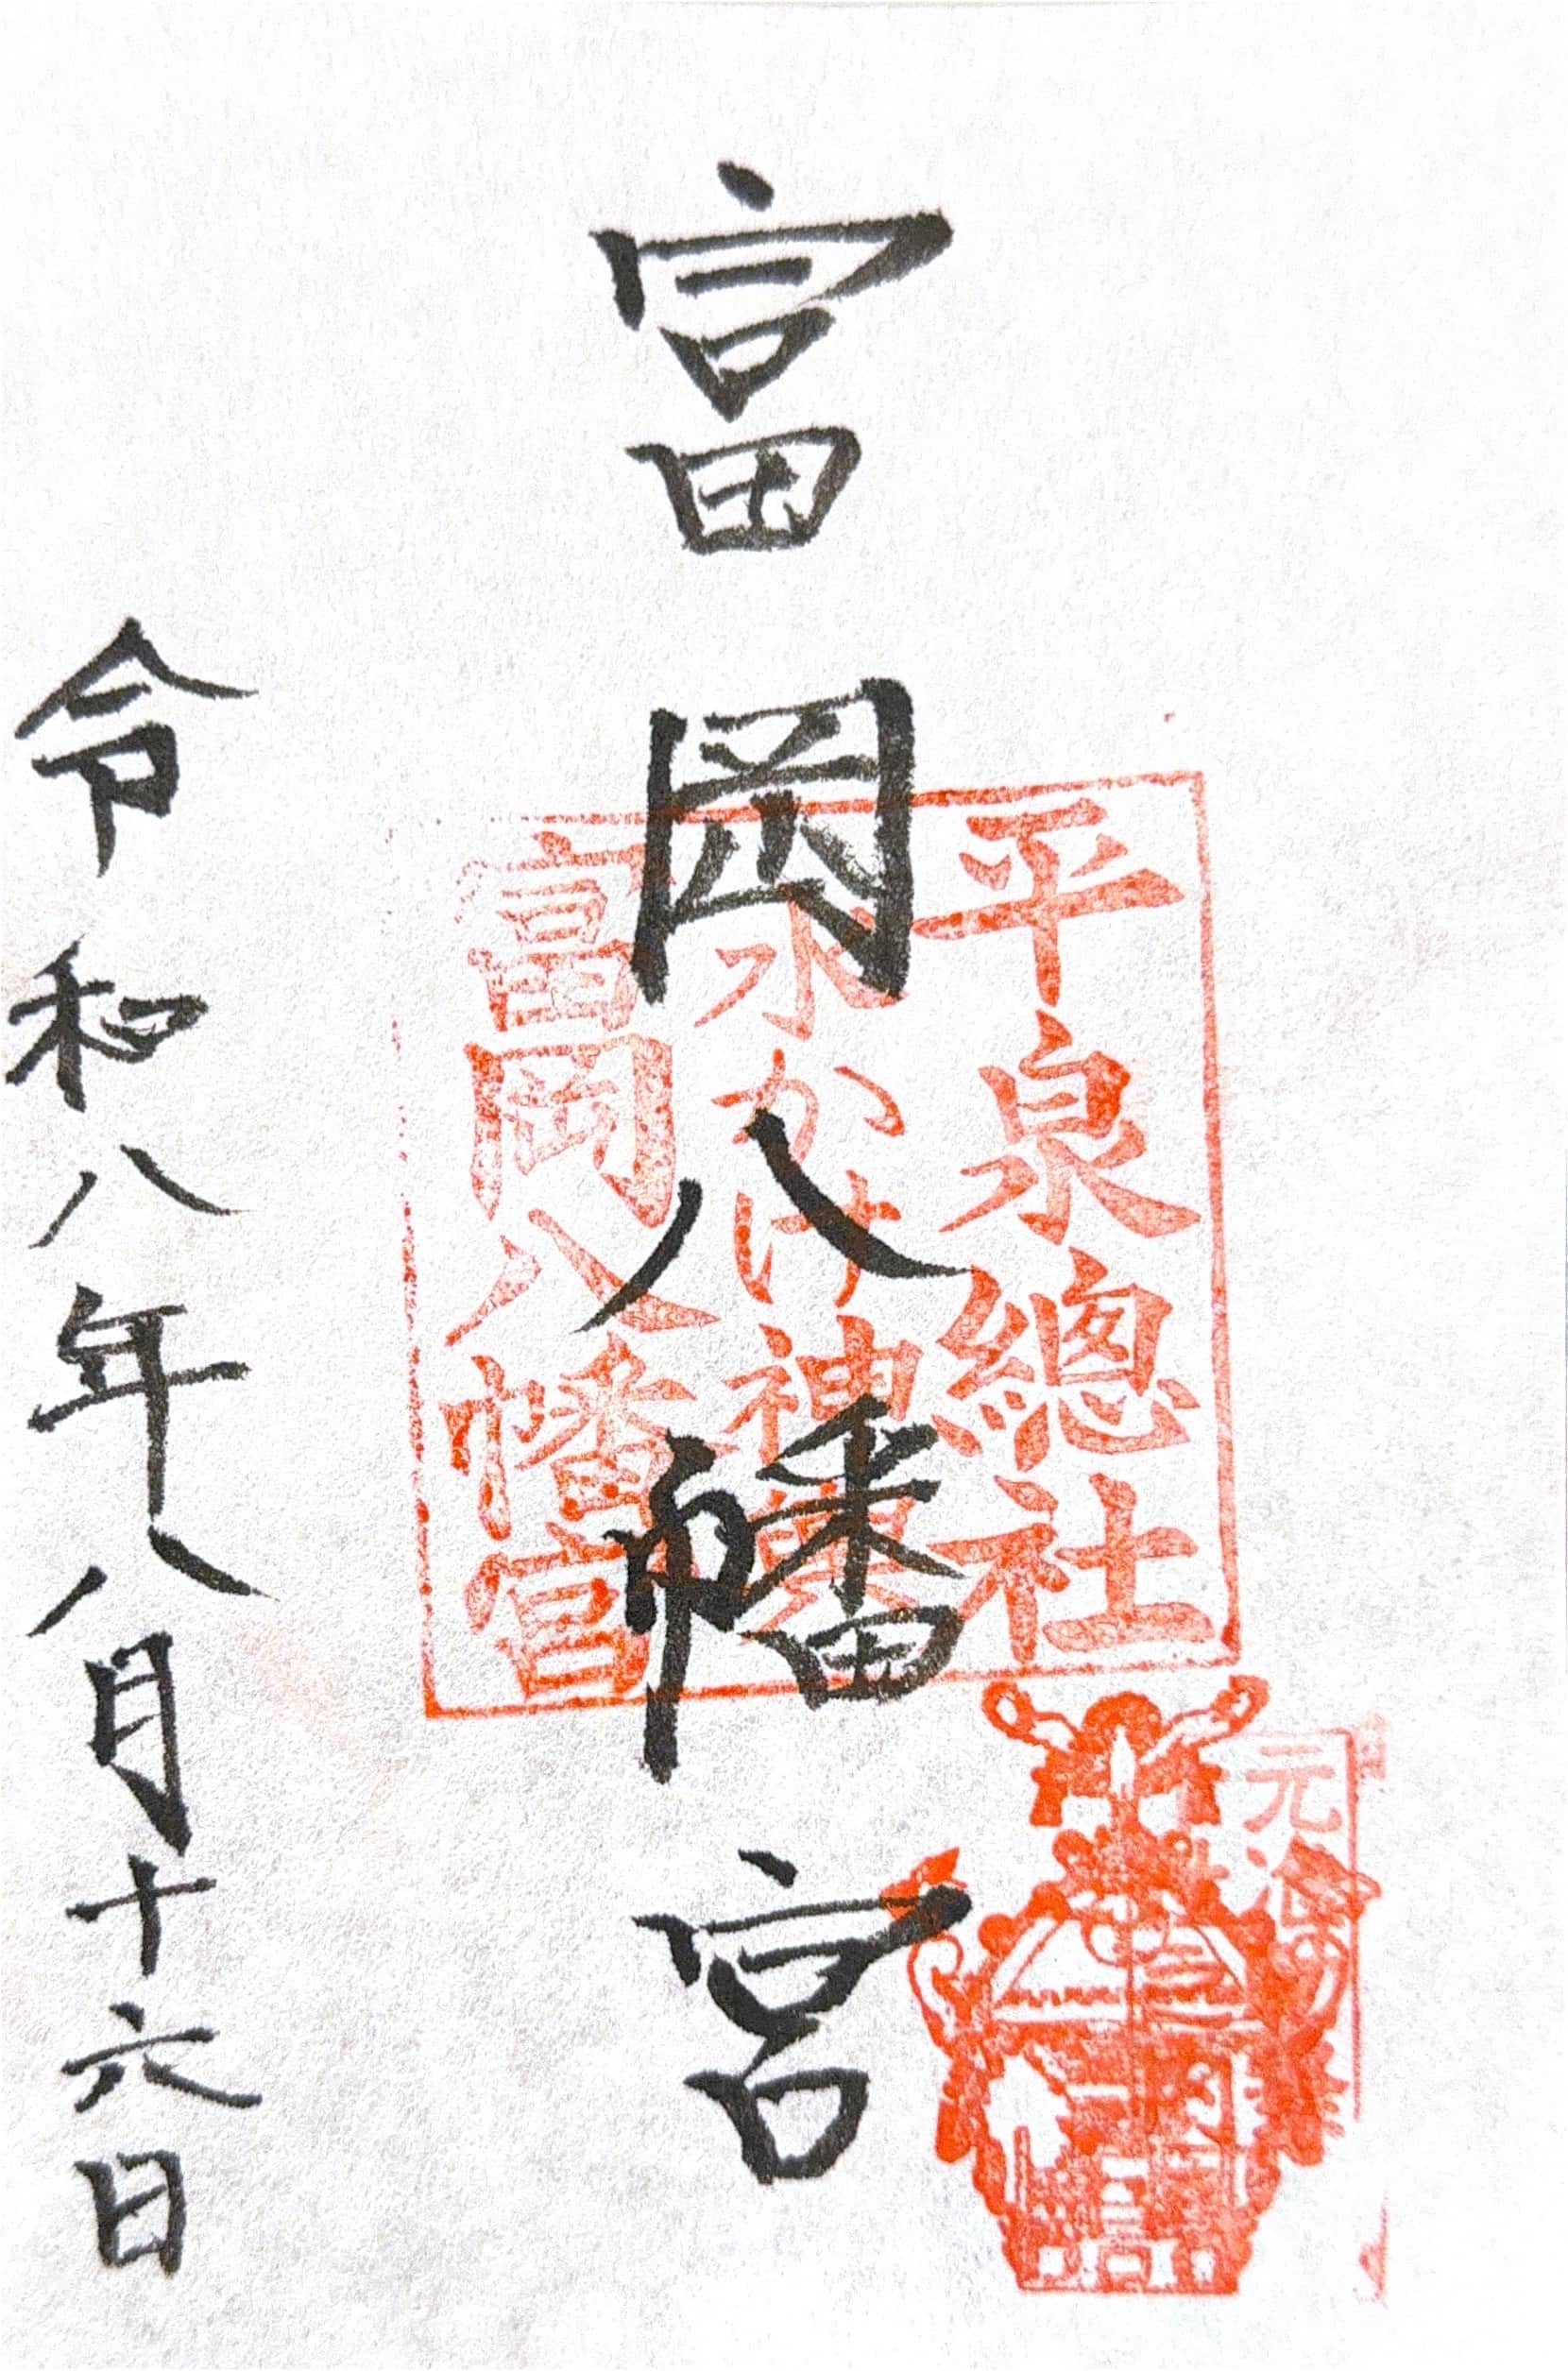 平泉總社
水かけ神輿
富岡八幡宮
富岡八幡宮
令和八年八月十六日